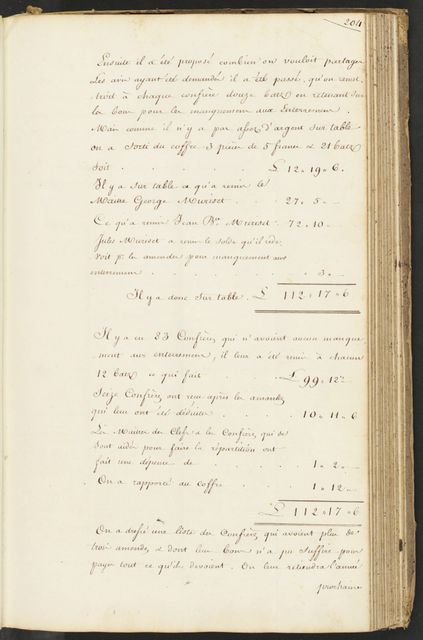 204
Ensuite il a été proposé combien on vouloit partager
Les avis ayant été demandés il a été passé, qu'on remet,
troit à chaque confrère douze batz en retenant sur
le bon pour les manquemens aux Enterremens.
Mais comme il n'y a pas assez d'argent sur table
on a sorti du coffre 3 pièces de 5 francs & 21 batz
soit . . . . . . . . £ 12 » 19 » 6.
Il y a sur table ce qu'a remis le
Maitre George Muriset . . . 27 . 5 »
Ce qu'a remis Jean Bte. Muriset . 72 . 10 »
Jules Muriset a remis le solde qu'il rede-
voit p. les amendes pour manquement aux
enterremens . . . . . . » 3 » —
Il y a donc sur table . £ 112 » 17 » 6
Il y a eu 83 Confrères qui n'avoient aucun manque
ment aux enterremens, il leur a été remis à chacun
12 batz ce qui fait . . . £ 99 . 12 »
Seize Confrères ont reçu après les amendes
qui leur ont été déduites . . . . 10 » 11 » 6
Les Maitres des Clefs & les Confrères qui se
sont aidés pour faire la répartition ont
fait une dépense de . . . . 1 » 2 » —
On a rapporté au coffre . . . . 1 » 12 » —
£ 112 » 17 » 6
On a dressé une liste des Confrères qui avoient plus de
trois amendes, & dont leur bon n'a pu suffire pour
payer tout ce qu'ils devoient. On leur retiendra l'année
prochaine